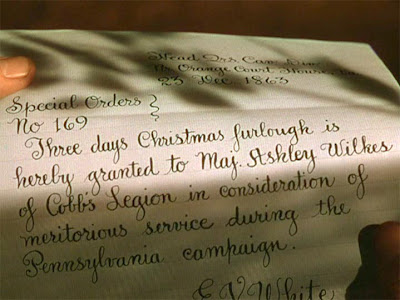 Head Qrs Cav. Div.
Nr Orange Court House, Va.
23 Dec. 1863
Special Orders }
No 169
Three days Christmas furlough is
hereby granted to Maj. Ashley Wilkes
of Cobb's Legion in consideration of
meritorious service during the
Pennsylvania campaign.
E. V. White